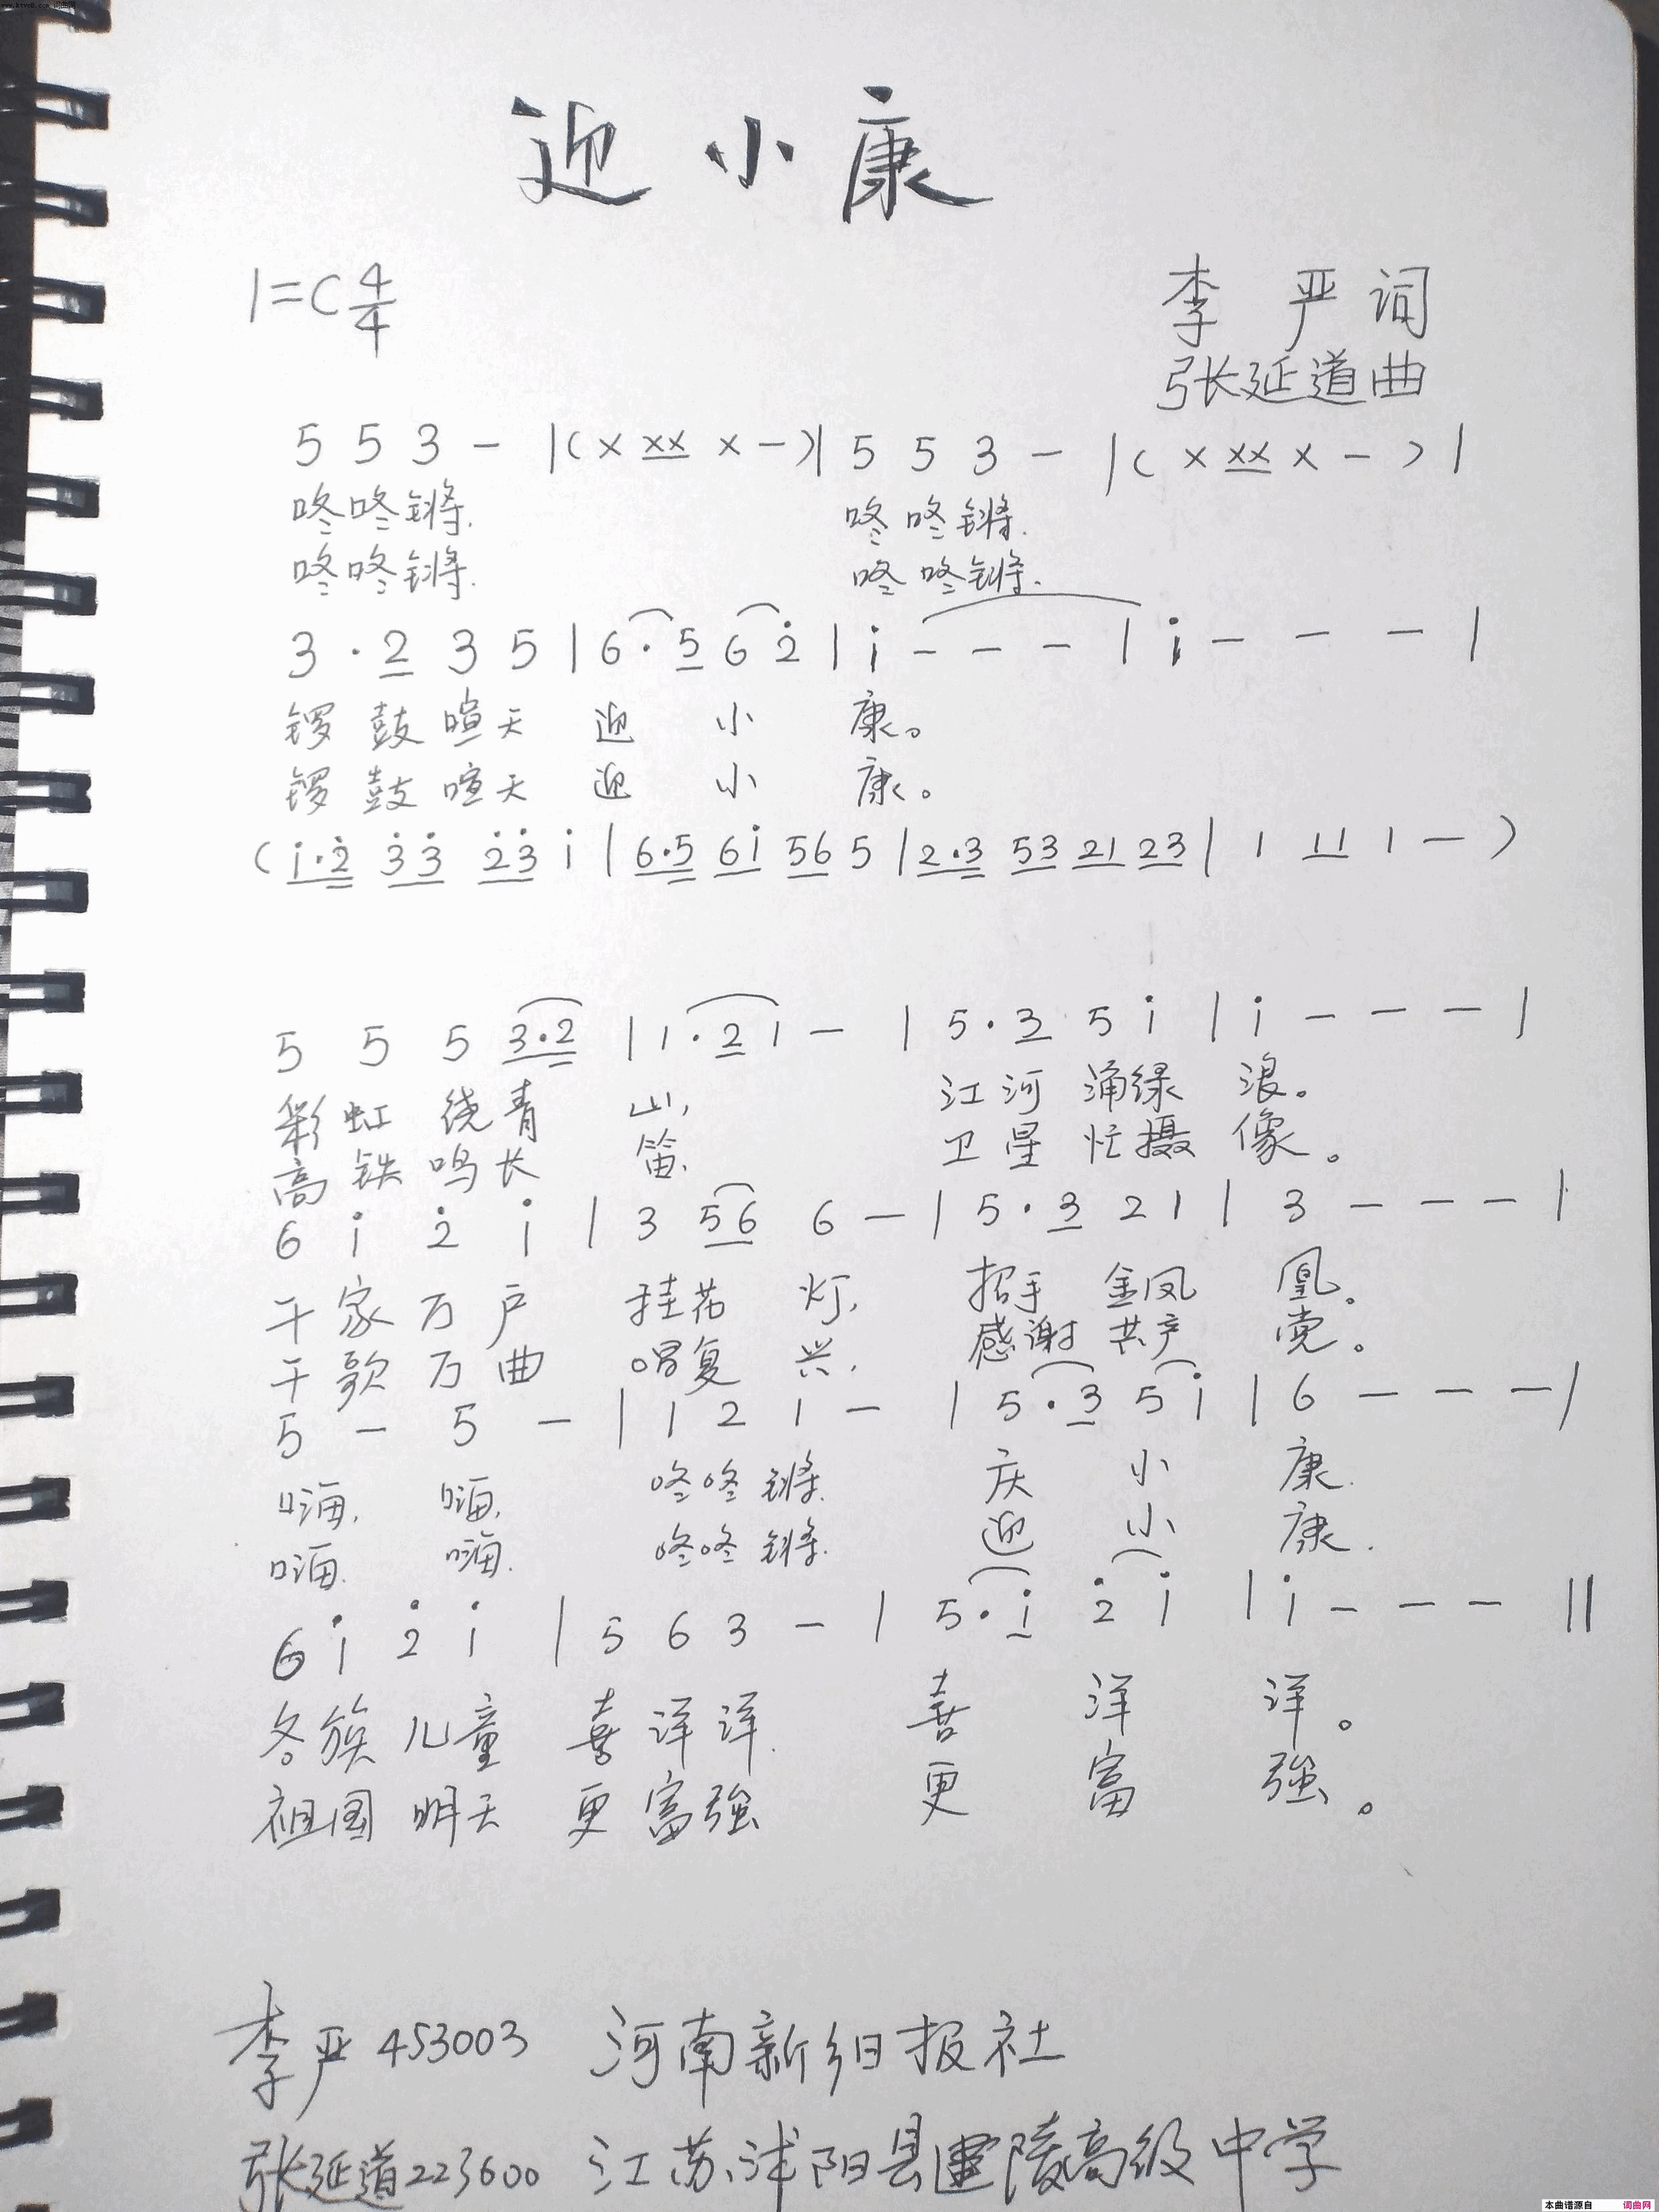 迎小康
1=C 4/4
李 严 词
张延道曲
5 5 3 - |(X XX X -)| 5 5 3 - |(X XX X -)|
咚咚锵. 咚咚锵.
咚咚锵. 咚咚锵.
3 · 2 3 5 | 6 · 5 6 2̇ | 1̇ - - - | 1̇ - - - |
锣鼓喧天 迎 小 康。
锣鼓喧天 迎 小 康。
(1̇·2̇ 3̇3̇ 2̇3̇ 1̇ | 6·5 61̇ 56 5 | 2·3 53 21 23 | 1 11 1 -)
5 5 5 3·2 | 1·2 1 - | 5·3 5 1̇ | 1̇ - - - |
彩虹绕青 山, 江河涌绿浪。
高铁鸣长 笛, 卫星忙摄像。
6 1̇ 2̇ 1̇ | 3 56 6 - | 5·3 2 1 | 3 - - - |
千家万户 挂花灯, 招手金凤凰。
千歌万曲 唱复兴, 感谢共产党。
5 - 5 - | 1 2 1 - | 5·3 5 1̇ | 6 - - - |
嗨, 嗨, 咚咚锵. 庆 小 康.
嗨. 嗨. 咚咚锵. 迎 小 康.
6 1̇ 2̇ 1̇ | 5 6 3 - | 5·1̇ 2̇ 1̇ | 1̇ - - - ‖
各族儿童 喜洋洋. 喜 洋 洋。
祖国明天 更富强 更 富 强。
李严 453003 河南新乡日报社
张延道 223600 江苏沭阳县陵高级中学
本曲谱源自 词曲网